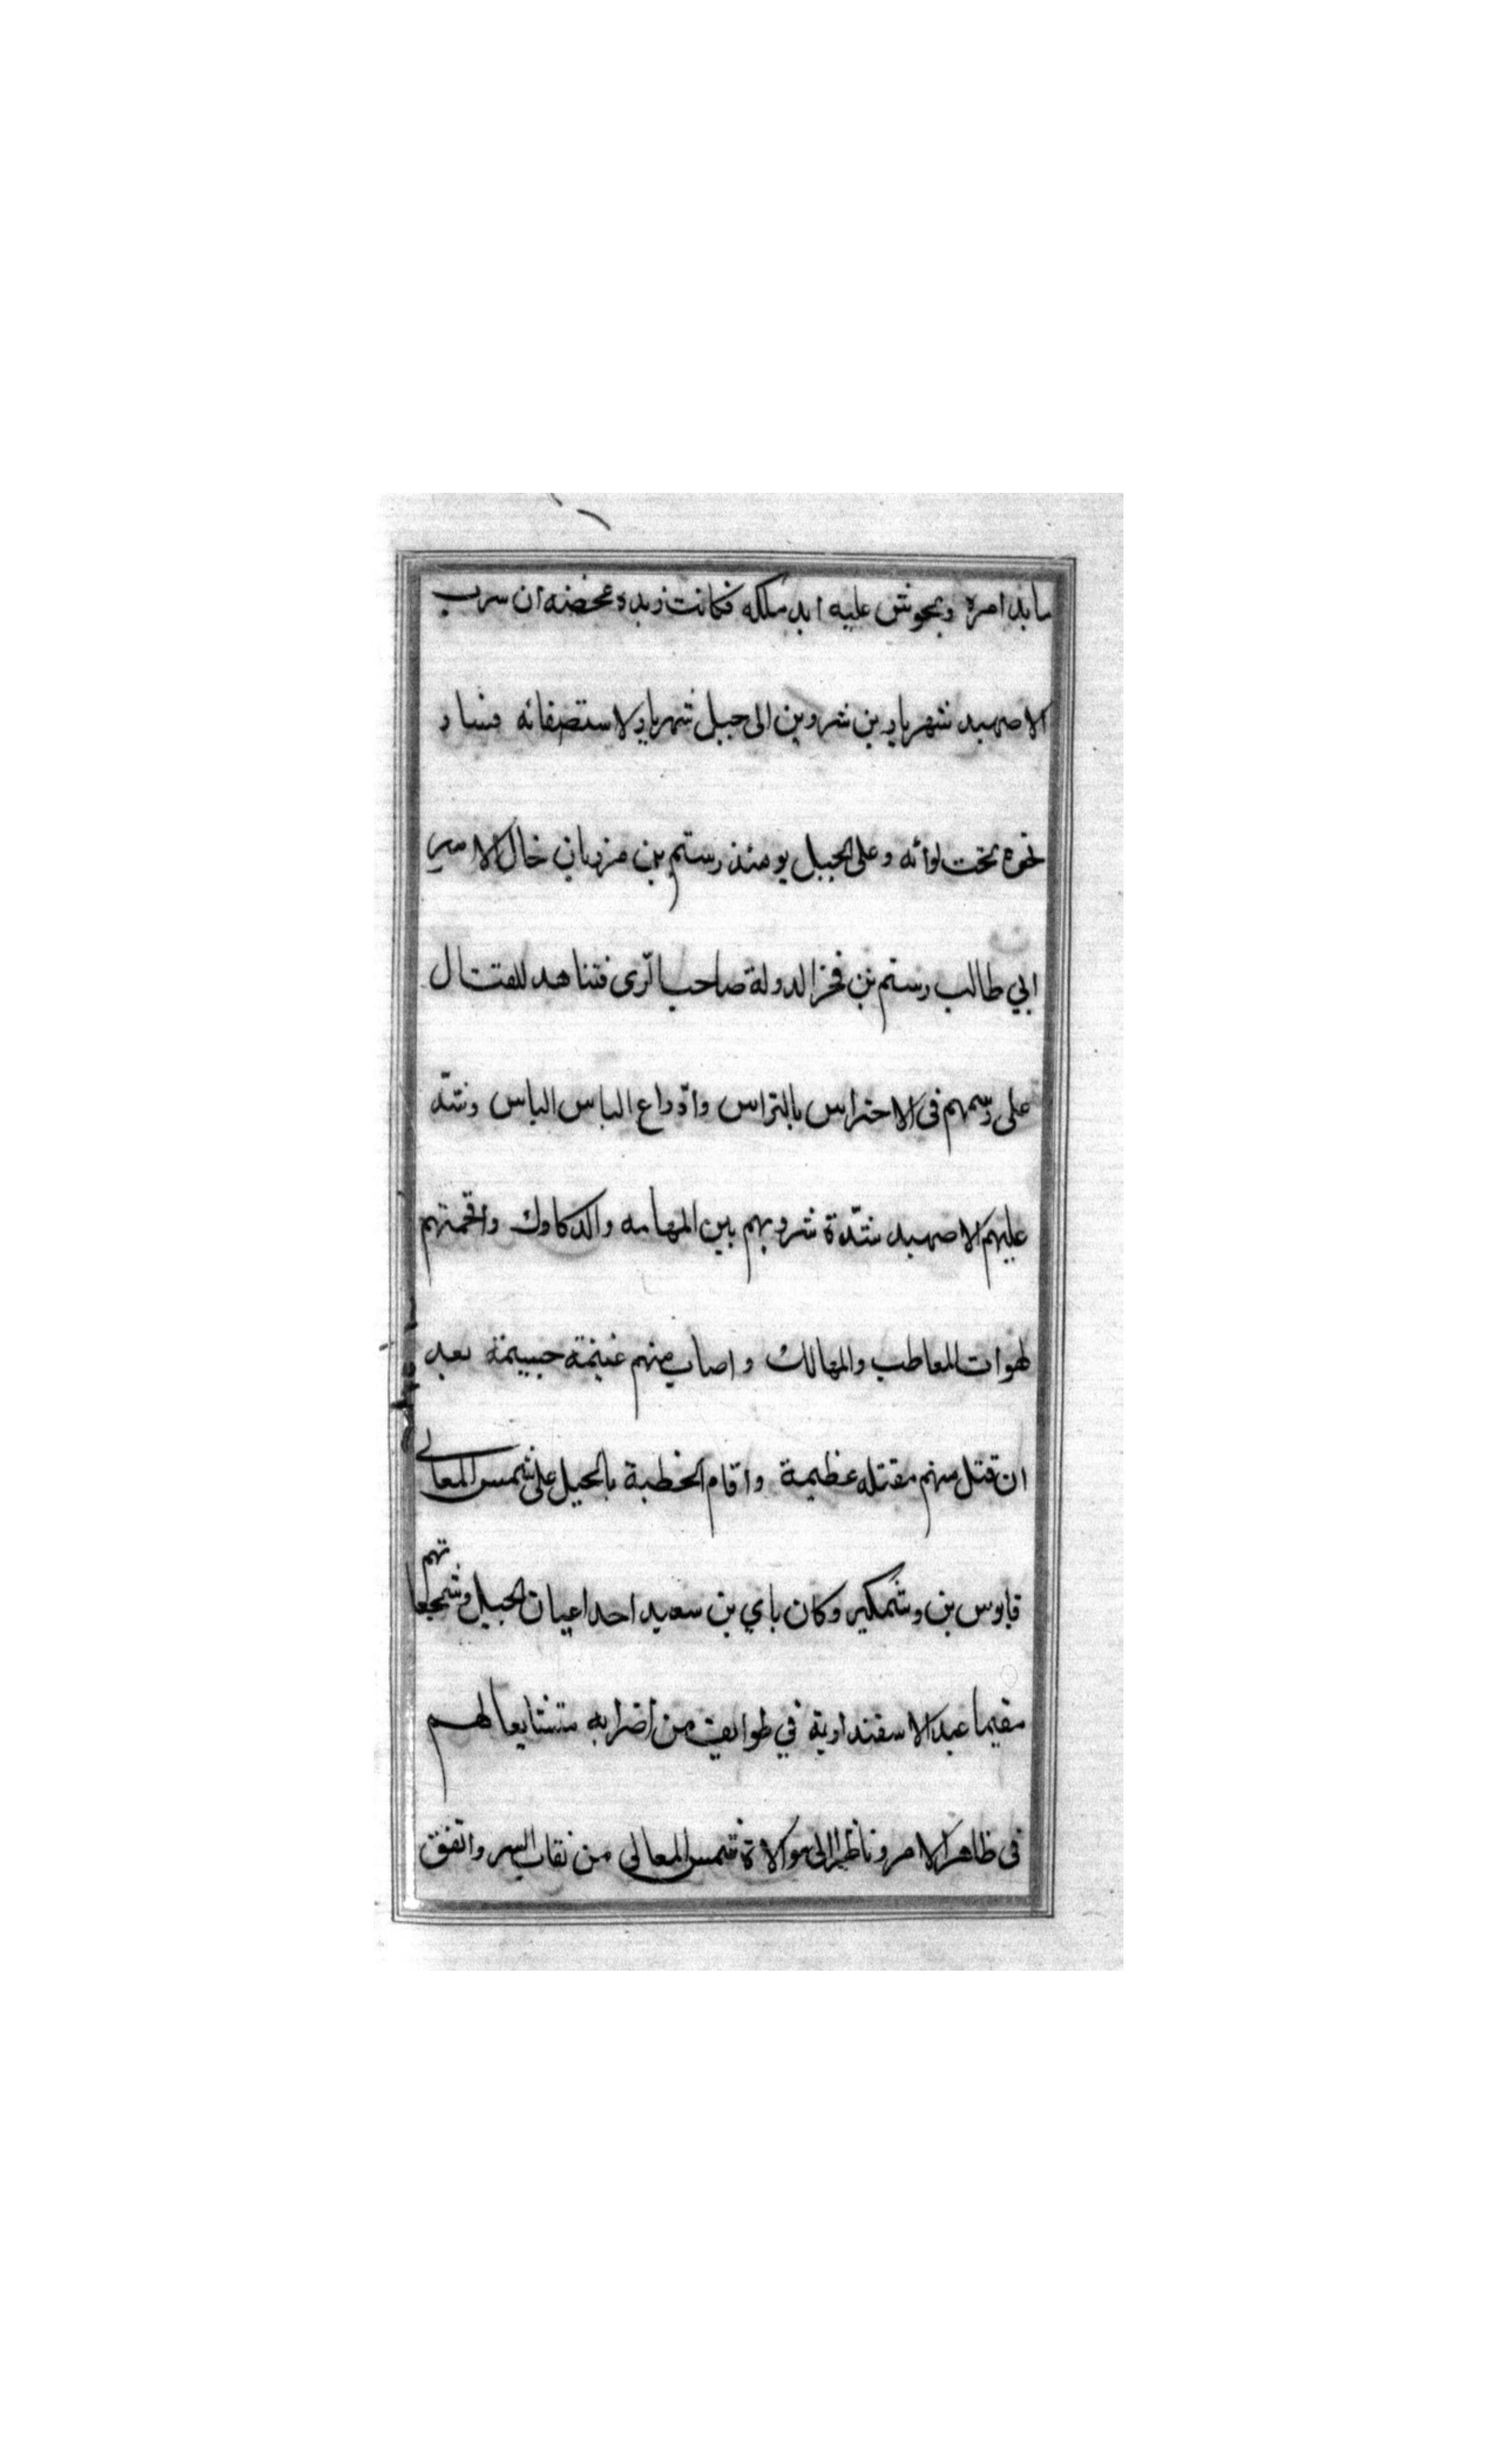 ما بد امره ويحوش عليه ابد ملكه فكانت زبدة محضه ان سرب
الاصهبد شهريار بن شروين الى جبل شهريار لاستصفائه فسار
نحوه تحت لوائه وعلى الجبل يومئذ رستم بن مرزبان خال الامير
ابي طالب رستم بن فخر الدولة صاحب الرّى فتناهد للقتال
على رسمهم فى الاحتراس بالتراس وادّراع الباس الباس وشدّ
عليهم الاصهبد شدّة شروبهم بين المهامه والدكاوك واقحمتهم
لهوات المعاطب والمهالك واصاب منهم غنيمة جسيمة بعد
ان قتل منهم مقتله عظيمة واقام الخطبة بالجبل على شمس المعالي
قابوس بن وشمكير وكان باي بن سعيد احد اعيان الجبل وشجعانهم
مقيما عبد الاسفنداوية في طوايف من اضرابه متشايعا لهم
فى ظاهر الامر وناظرا الى موالاة شمس المعالى من نقاب السر واتفق